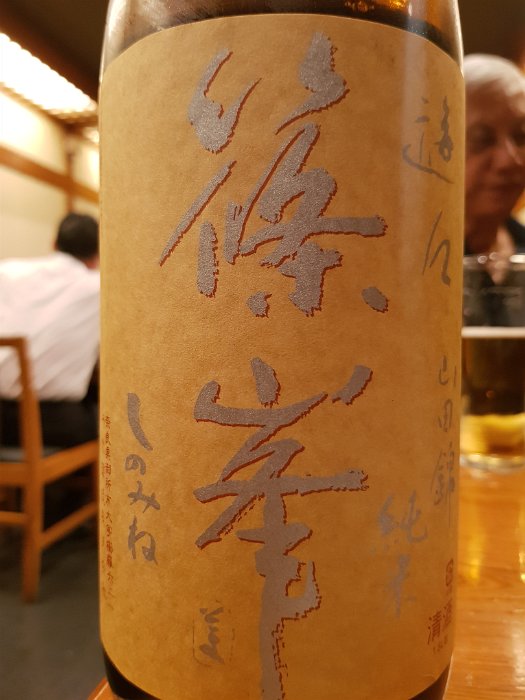 遊々 山田錦
純米
清酒
篠峯
しのみね
奈良県御所市大字櫛羅